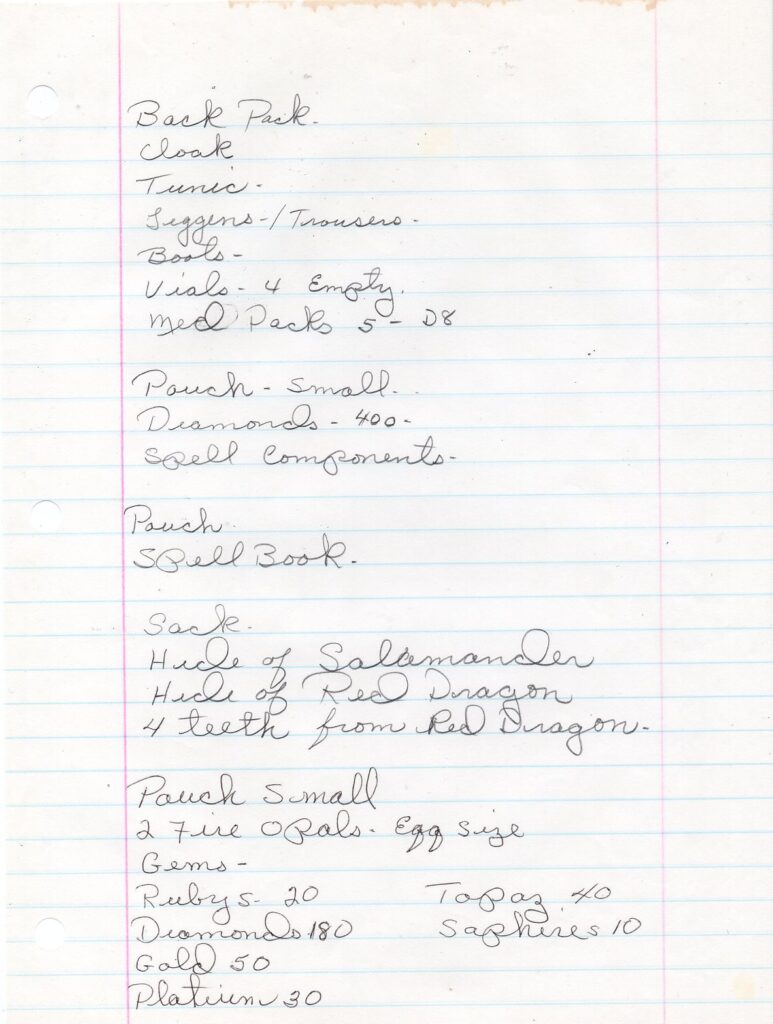 Back Pack.
Cloak
Tunic -
Leggens-/Trousers -
Boots -
Vials - 4 Empty.
Med Packs 5 - D8
Pouch - Small.
Diamonds - 400 -
Spell Components -
Pouch
Spell Book.
Sack.
Hide of Salamander
Hide of Red Dragon
4 teeth from Red Dragon -
Pouch Small
2 Fire Opals - Egg Size
Gems -
Rubys - 20 Topaz 40
Diamonds 180 Saphires 10
Gold 50
Platinum 30